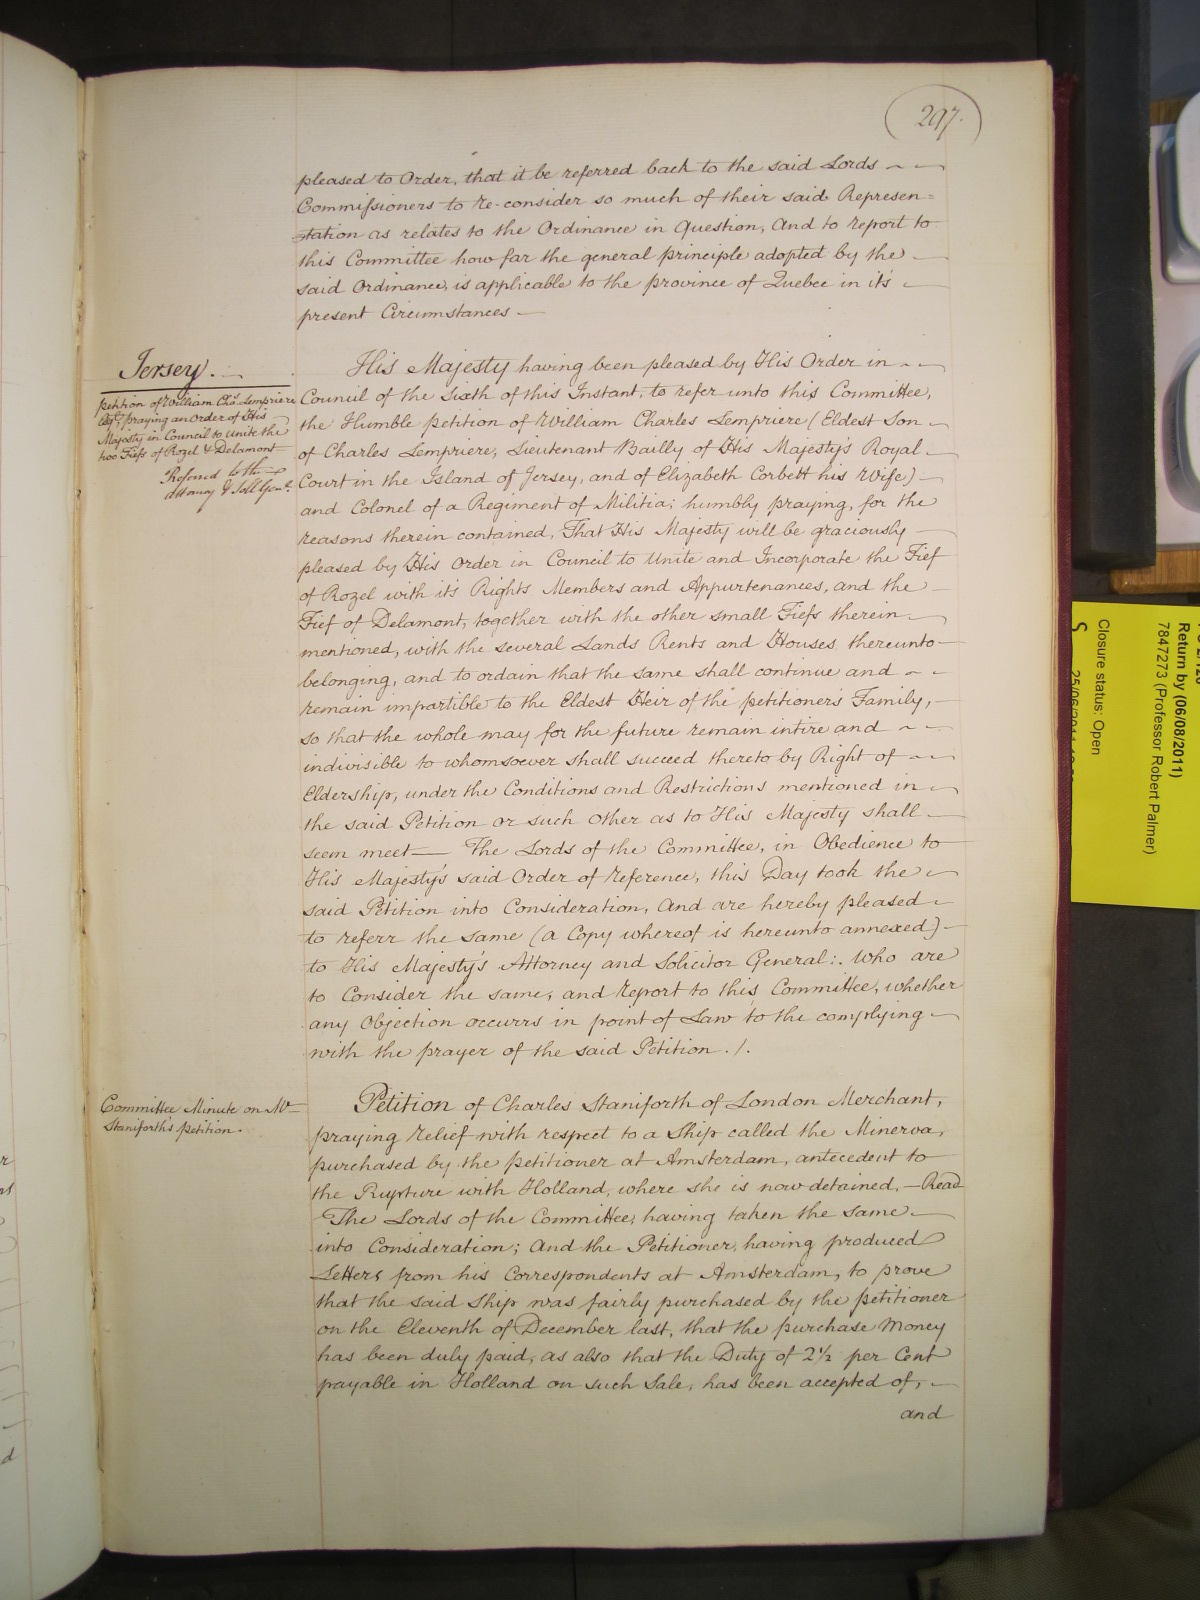 297.
pleased to Order, that it be referred back to the said Lords
Commissioners to re-consider so much of their said Represen=
=tation as relates to the Ordinance in Question, And to report to
this Committee how far the general principle adopted by the
said Ordinance, is applicable to the province of Quebec in it's
present Circumstances —
Jersey.
Petition of William Chas. Lempriere
Esqr. praying an Order of His
Majesty in Council to unite the
two Fiefs of Rozel & Delamont
Referred to the
Attorney & Soll. Genl.
His Majesty having been pleased by His Order in
Council of the Sixth of this Instant, to refer unto this Committee,
the Humble petition of William Charles Lempriere (Eldest Son
of Charles Lempriere, Lieutenant Bailly of His Majesty's Royal
Court in the Island of Jersey, and of Elizabeth Corbett his Wife)
and Colonel of a Regiment of Militia; humbly praying, for the
reasons therein contained, That His Majesty will be graciously
pleased by His Order in Council to Unite and Incorporate the Fief
of Rozel with its Rights Members and Appurtenances, and the
Fief of Delamont, together with the other small Fiefs therein
mentioned, with the several Lands Rents and Houses thereunto
belonging, and to ordain that the same shall continue and
remain impartible to the Eldest Heir of the petitioner's Family,
so that the whole may for the future remain intire and
indivisible to whomsoever shall succeed thereto by Right of
Eldership, under the Conditions and Restrictions mentioned in
the said Petition or such other as to His Majesty shall
seem meet — The Lords of the Committee, in Obedience to
His Majesty's said Order of Reference, this Day took the
said Petition into Consideration, And are hereby pleased
to referr the same (a Copy whereof is hereunto annexed)
to His Majesty's Attorney and Solicitor General: Who are
to Consider the same, and report to this Committee, whether
any Objection occurrs in point of Law to the complying
with the prayer of the said Petition ./.
Committee Minute on Mr
Staniforth's petition.
Petition of Charles Staniforth of London Merchant,
praying relief with respect to a Ship called the Minerva,
purchased by the petitioner at Amsterdam, antecedent to
the Rupture with Holland, where she is now detained, — Read
The Lords of the Committee, having taken the same
into Consideration; And the Petitioner, having produced
Letters from his Correspondents at Amsterdam, to prove
that the said Ship was fairly purchased by the petitioner
on the Eleventh of December last, that the purchase Money
has been duly paid, as also that the Duty of 2½ per Cent
payable in Holland on such Sale, has been accepted of,
and
Return by (06/08/2011)
7847273 (Professor Robert Palmer)
Closure status: Open
S